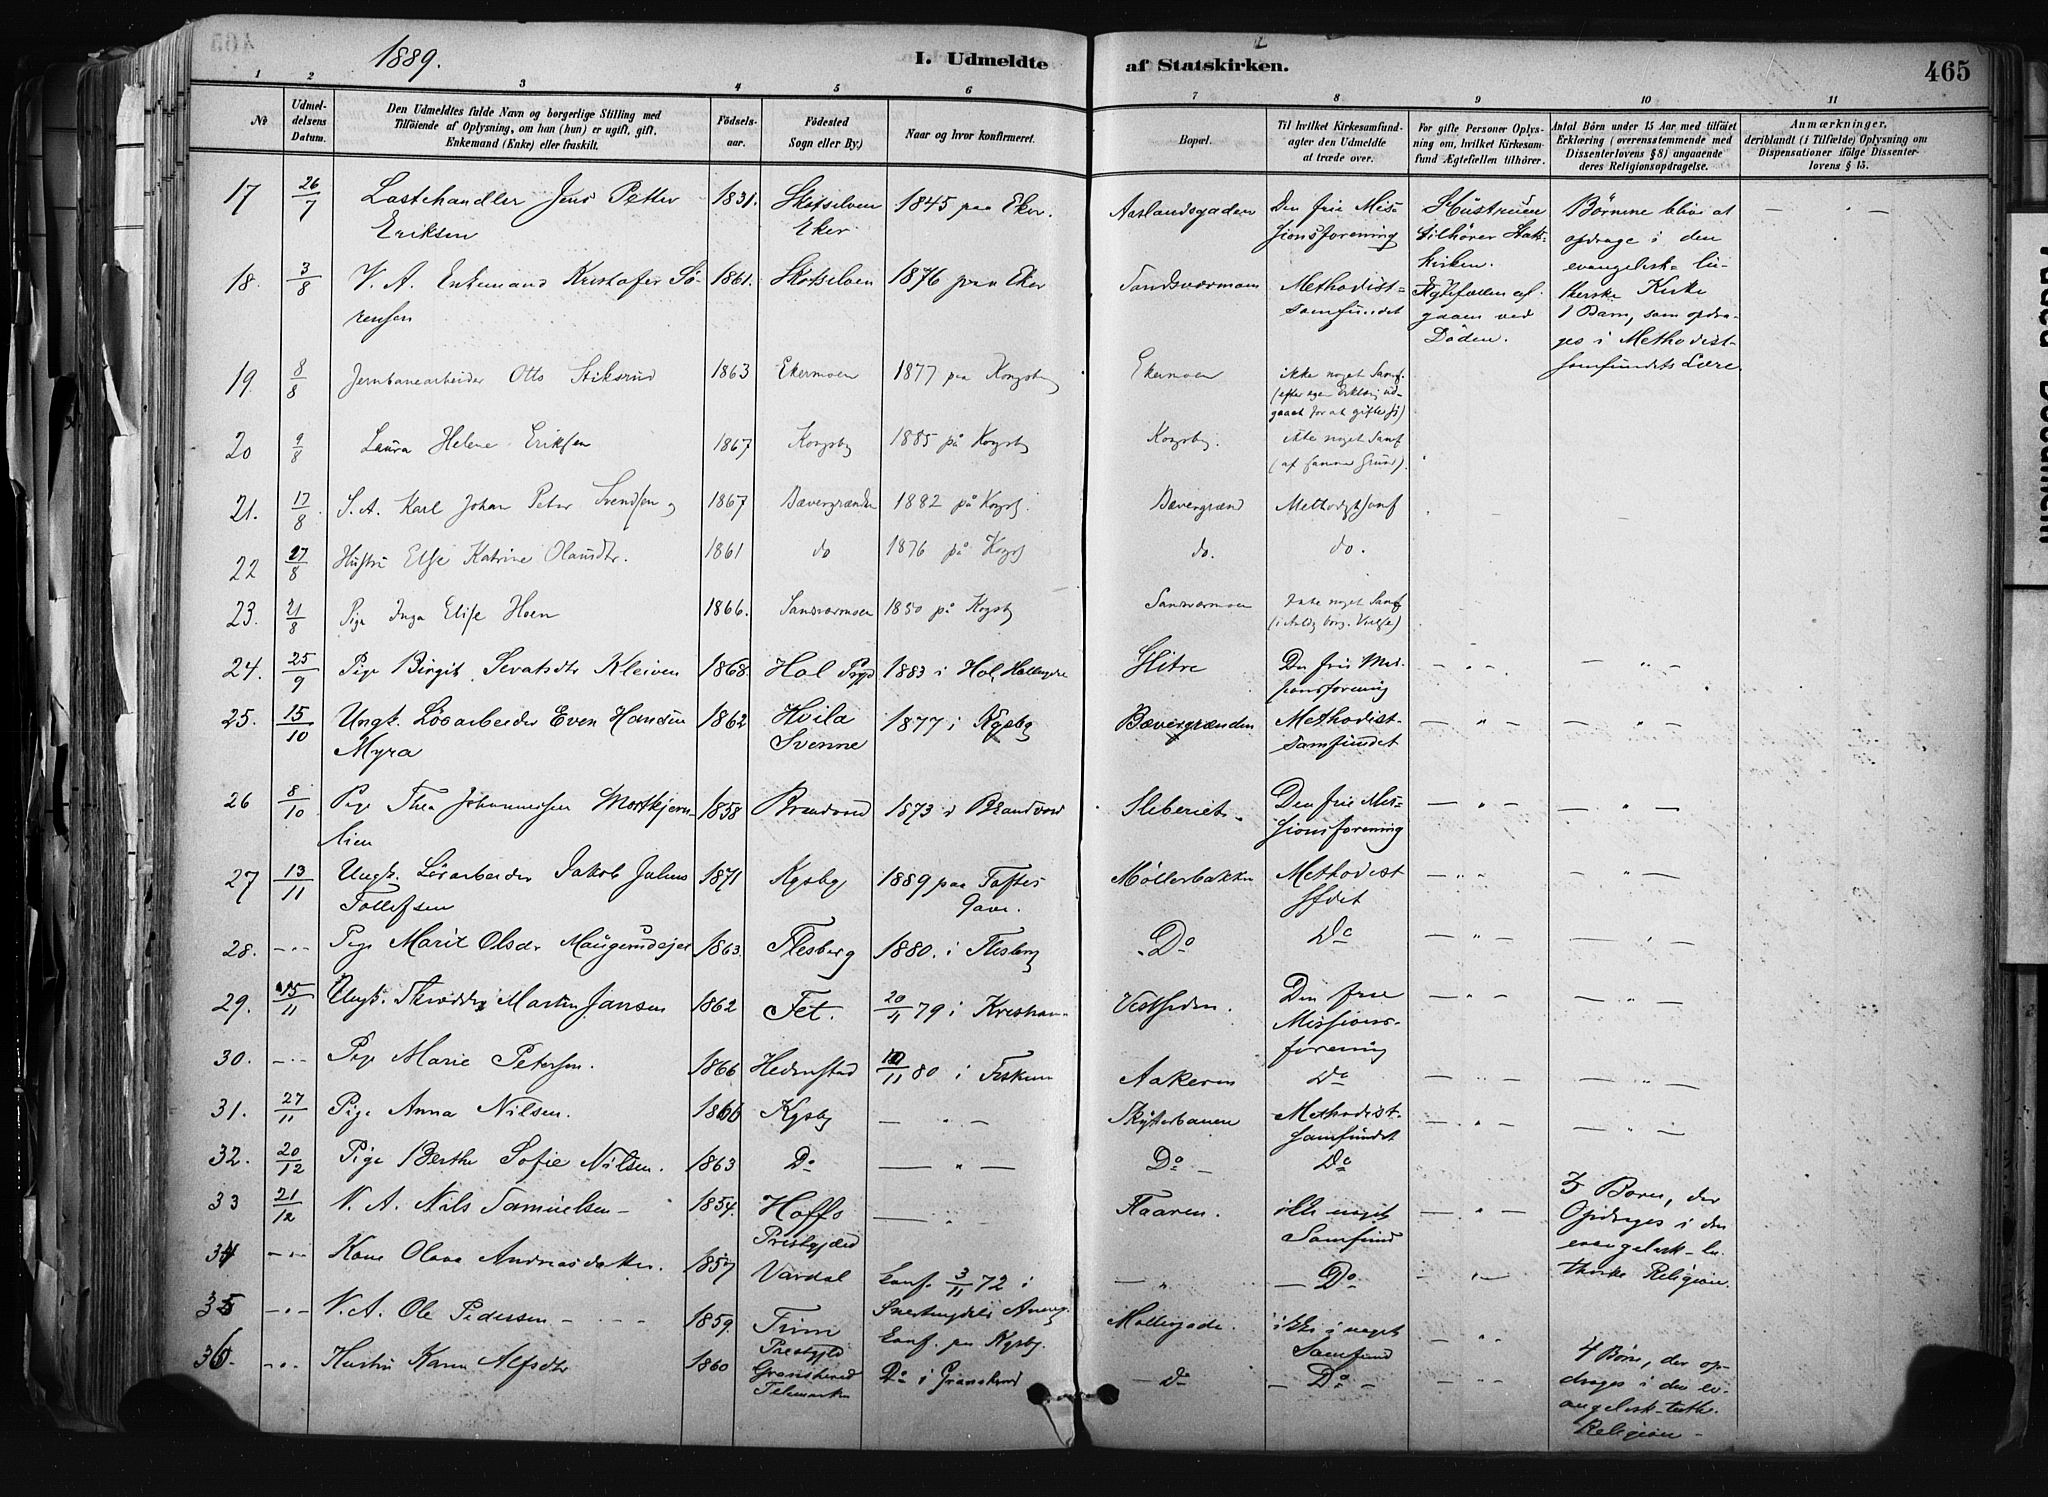 465
1889.
I. Udmeldte af Statskirken.
465
1 2 3 4 5 6 7 8 9 10 11
No
Udmeldelsens Datum.
Den Udmeldtes fulde Navn og borgerlige Stilling med
Tilføiende af Oplysning, om han (hun) er ugift, gift,
Enkemand (Enke) eller fraskilt.
Fødselsaar.
Fødested
Sogn eller By.)
Naar og hvor konfirmeret.
Bopæl.
Til hvilket Kirkesamfund
agter den Udmeldte
at træde over.
For gifte Personer Oplysning
om, hvilket Kirkesamfund
Ægtefællen tilhører.
Antal Børn under 15 Aar med tilføiet
Erklæring (overensstemmende med
Dissenterlovens § 8) angaaende
deres Religionsopdragelse.
Anmærkninger,
deriblandt (i Tilfælde) Oplysning om
Dispensationer ifølge Dissenterlovens § 15.
17 26/7 Lastehandler Jens Petter 1831. Skotselven 1845 paa Eker. Aaslandsgaden Den frie Mis- Hustruen Børnene blive at
Eriksen Eker sionsforening tilhører Stats- opdrage i den
kirken. evangelisk-lu-
18. 3/8 V. A. Enkemand Kristofer Sö- 1861. Skotselven 1876 paa Eker Sandsværmoen Methodist- Ægtefællen af- therske Kirke
rensen samfundet gaaen ved 1 Barn, som opdra-
Döden. ges i Methodist-
samfundets Lære
19. 8/8 Jernbanearbeider Otto Stiksrud 1863 Ekermoen 1877 paa Kongsbg Ekermoen ikke noget Samf.
(efter egen Erklæg ud-
gaaet for at gifte sig)
20 9/8 Laura Helene Eriksen 1867 Kongsbg 1885 på Kongsbg Kongsbg. ikke noget Samf
(af samme Grund).
21. 17/8 S. A. Karl Johan Peter Svendsen og 1867 Bævergrænden 1882 på Kongsb. Bævergrænd Methodistsamf
22 27/8 Hustru Else Katrine Olausdtr. 1861 do 1876 på Kongsb do. do.
23. 21/8 Pige Inga Elise Hoen 1866. Sandsværmoen 1850 på Kongsbg Sandsværmoen Ikke noget Samf
24. 25/9 Pige Birgit Sevatsdtr Kleiven 1868. Hol Prgd 1883 i Hol, Hallingdal Glitre Den frie Mis-
sionsforening
25. 15/10 Ungk. Løsarbeider Even Hansen 1862 Hvila 1877 i Kgsbg Bævergrænden Methodist-
Myra Svenne samfundet
26 8/10 Pige Thea Johannessen Mortkjern- 1858 Brandvold 1873 i Brandvold Sleberiet. Den frie Mis-
lien sionsforening
27 13/11 Ungk. Lösarbeider Jakob Julius 1871 Kgsbg 1889 paa Toftes Møllerbakken Methodist
Tollefsen Gave. Sfdet
28. -"- Pige Marit Olsdr 1863. Flesberg 1880. i Flesberg Do Do
29. 15/11 Ungk. Skrædder Martin Jansen 1862 Fet. 20/11 79 i Kristian- Vestsiden. Den frie
Missions-
forening
30. -"- Pige Marie Petersen. 1866 Hedenstad 10/11 80 i Fiskum Aakeren Do
31. 27/11 Pige Anna Nilsen. 1866 Kgsbg — " — Skytterbanen Methodist-
samfundet
32. 20/12 Pige Berthe Sofie Nilsen. 1863 Do — " — Do Do
33 21/12 N. A. Nils Samuelsen 1854. Hoffs — " — Flaaren. ikke noget — " — 3 Børn, der
Prestegjeld Samfund Opdrages i den
34 -"- Kone Olava Andreasdatter. 1857 Vardal konf. 3/11 72 i — " — Do — " — evangelisk-lu-
therske Religion.
35 -"- N. A. Ole Pedersen 1859. konf. paa Kgsbg. Møllergade. ikke i noget — " — 4 Børn, der op-
Prestgjeld Samfund drages i den ev-
36. -"- Hustru Karen Alfsdtr 1860 Gransherred Do i Gransherred — do Do — " — angelisk-luth.
Telemarken Religion